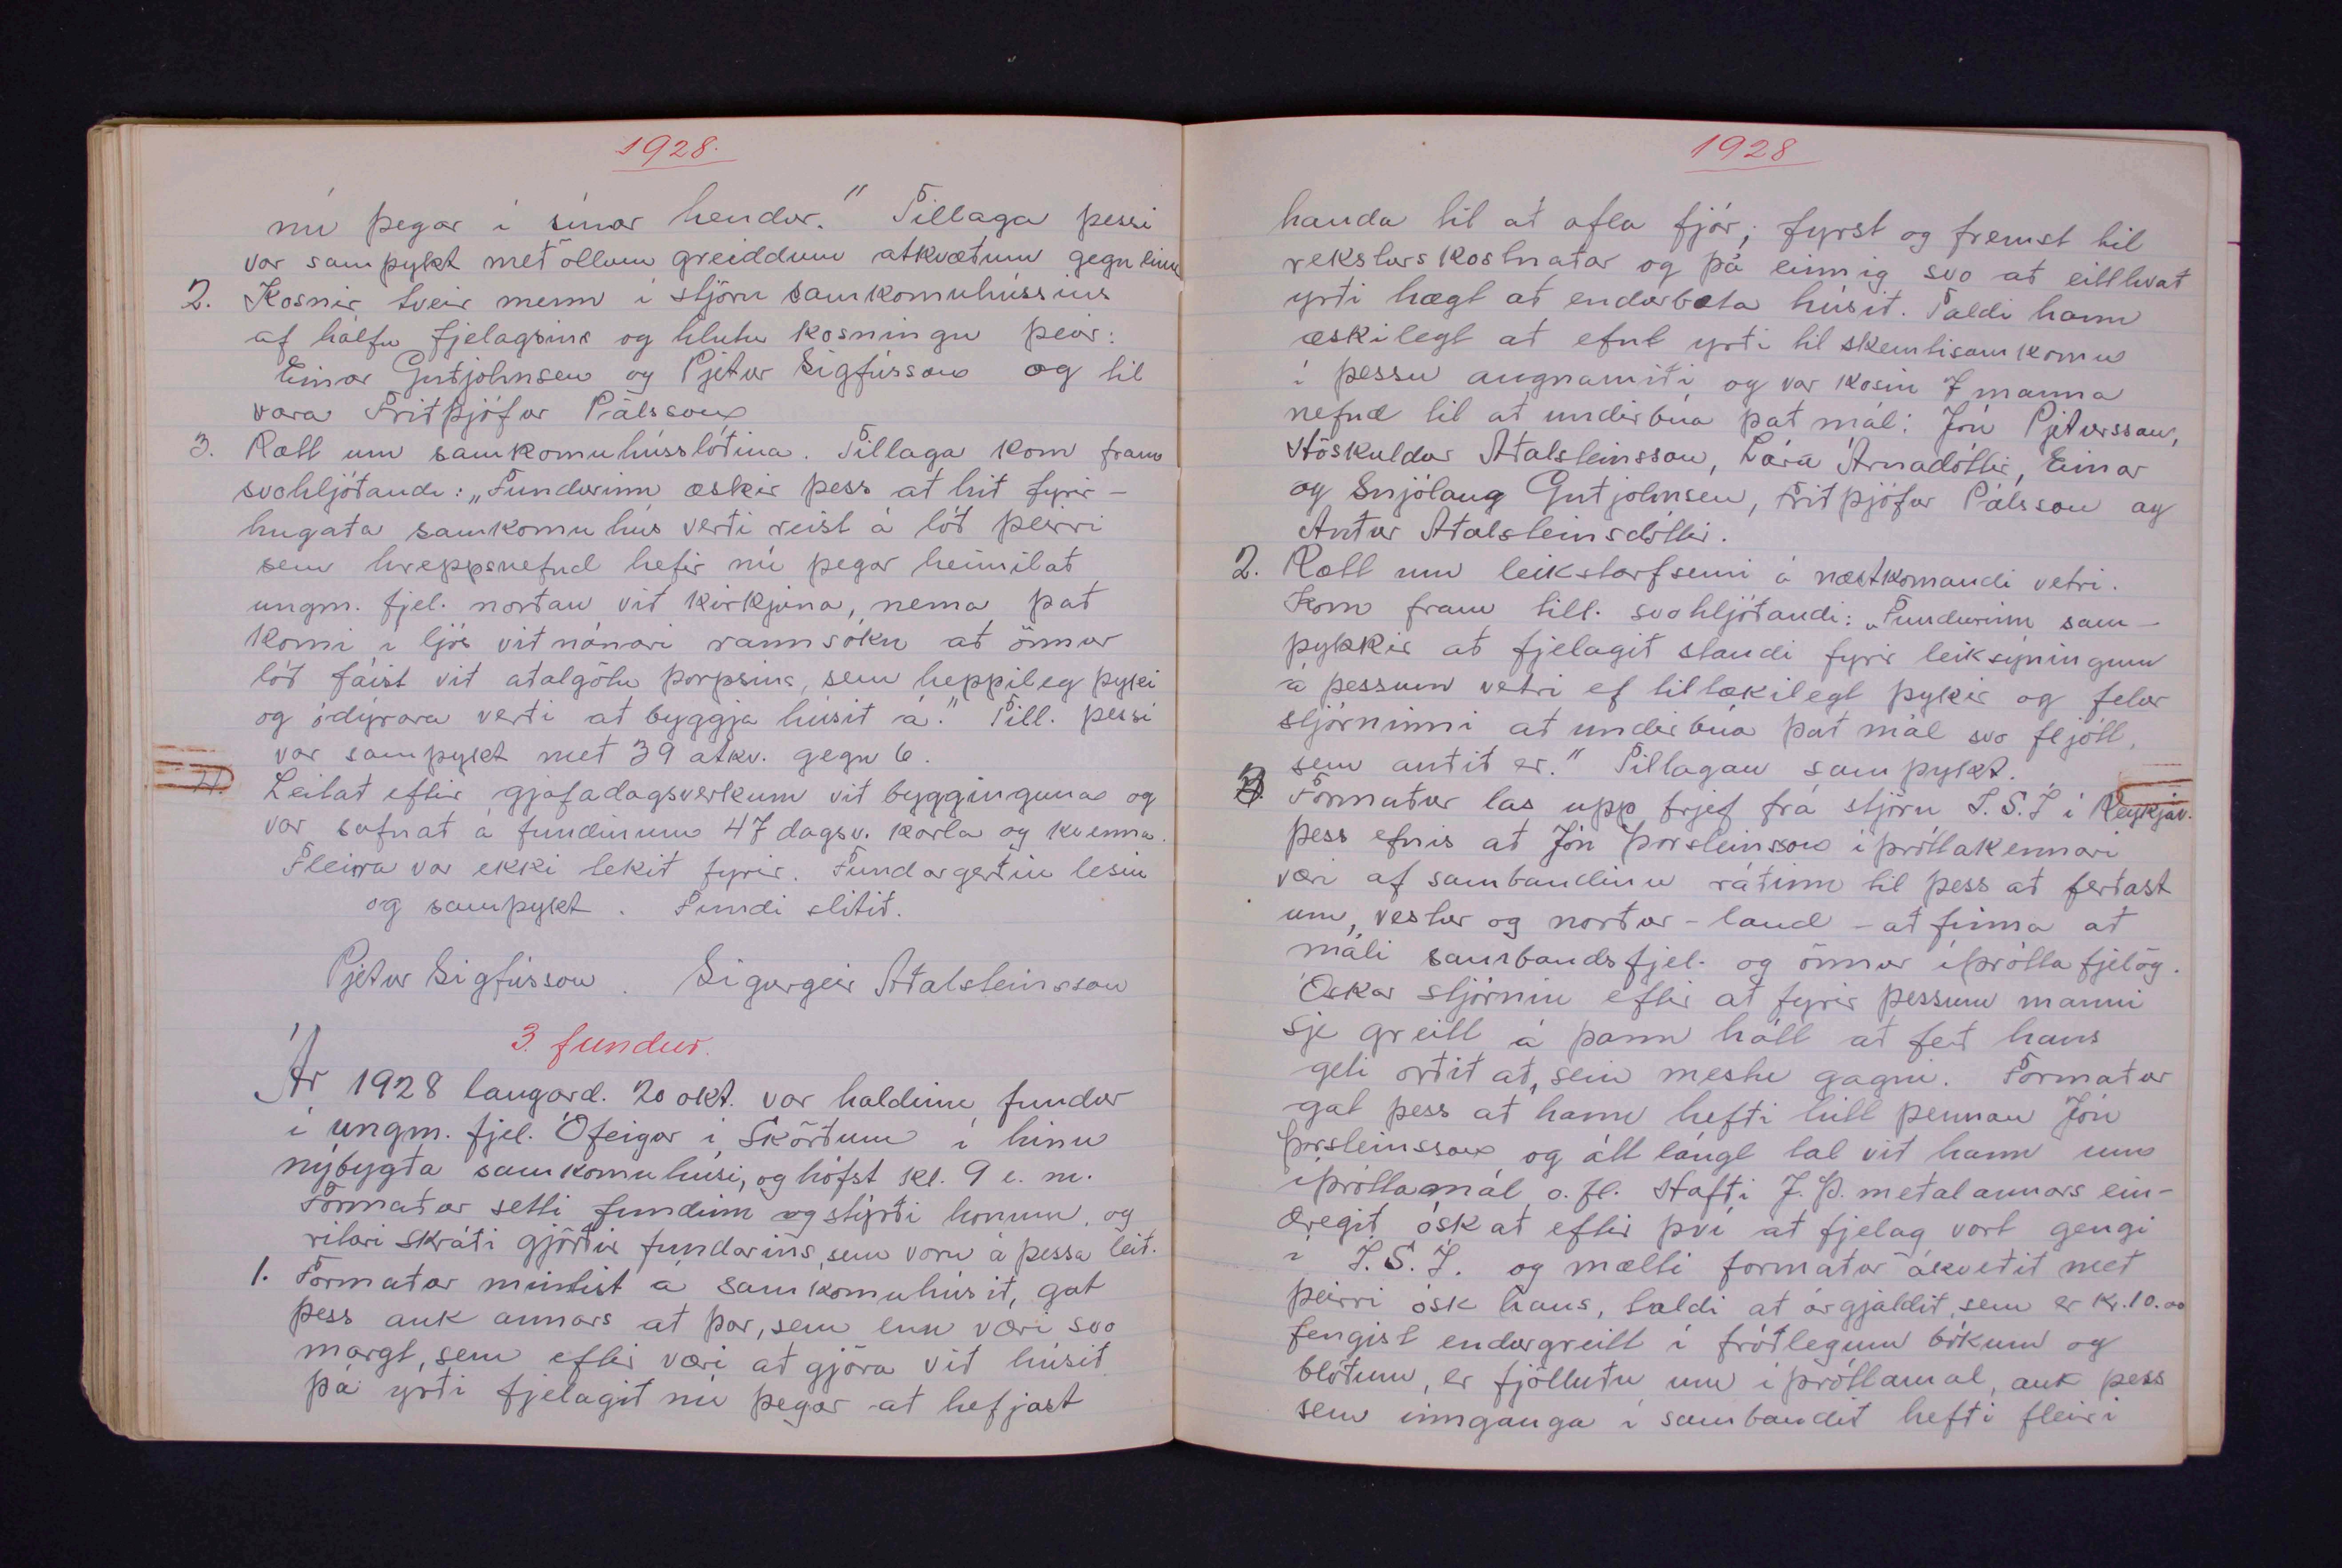 1928.
nú þegar í sínar hendur." Tillaga þessi
var samþykt með öllum greiddum atkvæðum gegn einu
2. Kosnir tveir menn í stjórn samkomuhússins
af hálfu fjelagsins og hlutu kosningu þeir:
Einar Guðjohnsen og Pjetur Sigfússon og til
vara Friðþjófur Pálsson
3. Rætt um samkomuhússlóðina. Tillaga kom fram
svohljóðandi: „Fundurinn æskir þess að hið fyrir-
hugaða samkomuhús verði reist á lóð þeirri
sem hreppsnefnd hefir nú þegar heimilað
ungm. fjel. norðan við kirkjuna, nema það
komi í ljós við nánari rannsókn að önnur
lóð fáist við aðalgötu þorpsins, sem heppileg þyki
og ódýrara verði að byggja húsið á." Till. þessi
var samþykt með 39 atkv. gegn 6.
4. Leitað eftir gjafadagsverkum við bygginguna og
var safnað á fundinum 47 dagsv. karla og kvenna.
Fleira var ekki tekið fyrir. Fundargerðin lesin
og samþykt. Fundi slitið.
Pjetur Sigfússon. Sigurgeir Aðalsteinsson
3. fundur.
Ár 1928 laugard. 20 okt. var haldinn fundur
í ungm. fjel. Ófeigur í Skörðum í hinu
nýbygða samkomuhúsi, og hófst kl. 9 e. m.
Formaður setti fundinn og stýrði honum, og
ritari skráði gjörðir fundarins, sem voru á þessa leið.
1. Formaður mintist á samkomuhúsið, gat
þess auk annars að þar, sem enn væri svo
margt, sem eftir væri að gjöra við húsið
þá yrði fjelagið nú þegar að hefjast
1928
handa til að afla fjár; fyrst og fremst til
reksturskostnaðar og þá einnig svo að eitthvað
yrði hægt að endurbæta húsið. Taldi hann
æskilegt að efnt yrði til skemtisamkomu
í þessu augnamiði og var kosin 7 manna
nefnd til að undirbúa það mál: Jón Pjetursson,
Höskuldur Aðalsteinsson, Lára Árnadóttir, Einar
og Snjólaug Guðjohnsen, Friðþjófur Pálsson og
Auður Aðalsteinsdóttir.
2. Rætt um leikstarfsemi á næstkomandi vetri.
Kom fram till. svohljóðandi: „Fundurinn sam-
þykkir að fjelagið standi fyrir leiksýningum
á þessum vetri ef tiltækilegt þykir og felur
stjórninni að undirbúa það mál svo fljótt,
sem auðið er." Tillagan samþykt.
3. Formaður las upp brjef frá stjórn Í.S.Í í Reykjav.
þess efnis að Jón Þorsteinsson íþróttakennari
væri af sambandinu ráðinn til þess að ferðast
um vestur og norður-land - að finna að
máli sambandsfjel. og önnur íþróttafjelög.
Óskar stjórnin eftir að fyrir þessum manni
sje greitt á þann hátt að ferð hans
geti orðið að, sem mestu gagni. Formaður
gat þess að hann hefði hitt þennan Jón
Þorsteinsson og átt langt tal við hann um
íþróttamál o. fl. Hafði J. Þ. meðal annars ein-
dregið óskað eftir því að fjelag vort gengi
í Í.S.Í. og mælti formaður ákveðið með
þeirri ósk hans, taldi að árgjaldið, sem er kr. 10.00
fengist endurgreitt í fróðlegum bókum og
blöðum, er fjölluðu um íþróttamál, auk þess
sem innganga í sambandið hefði fleiri